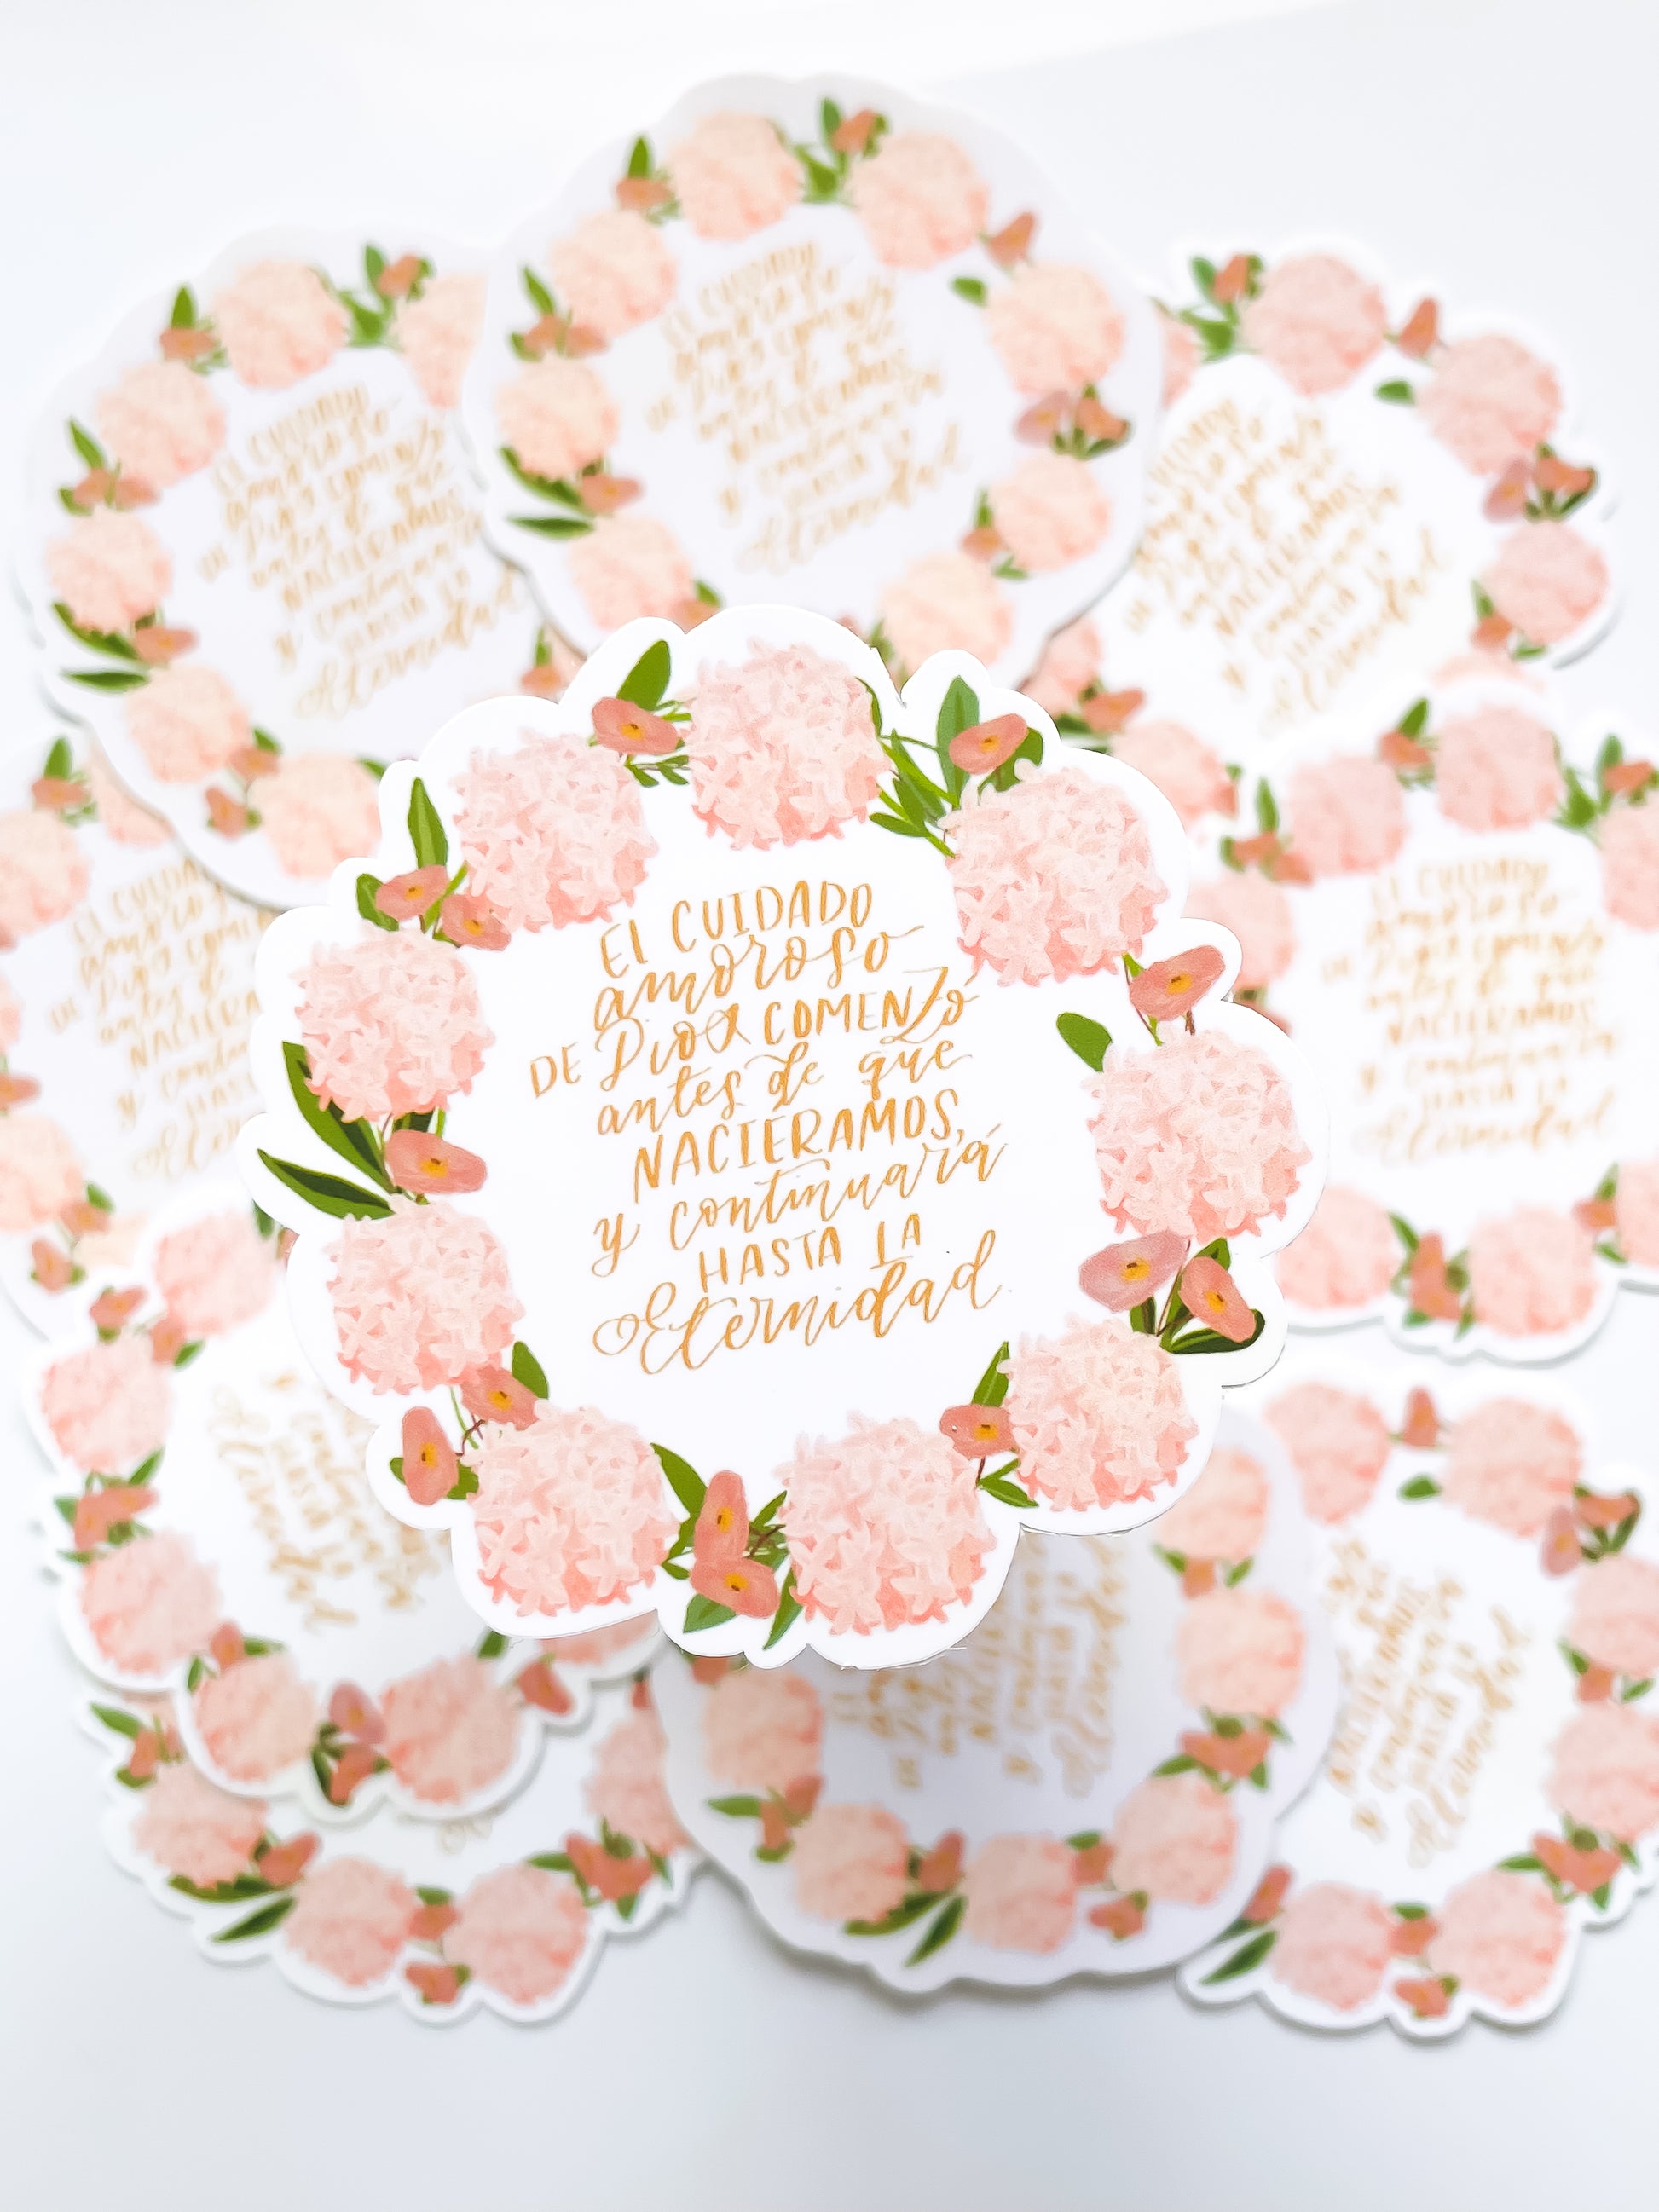 El CUIDADO
amoroso
DE Dios COMENZÓ
antes de que
NACIERAMOS,
y continuará
HASTA LA
Eternidad.